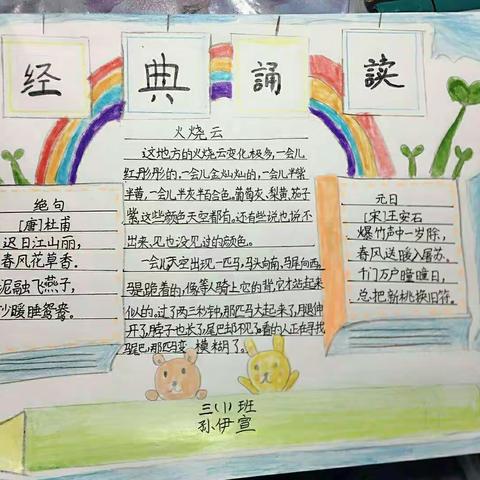 经典誦读
火烧云
这地方的火烧云变化极多,一会儿
红彤彤的,一会儿金灿灿的,一会儿半紫
半黄,一会儿半灰半百合色。葡萄灰、梨黄、茄子
紫,这些颜色天空都有。还有些说也说不
出来、见也没见过的颜色。
一会儿,天空出现一匹马,马头向南,马尾向西。
马是跪着的,像等人骑上它的背,它才站起来
似的。过了两三秒钟,那匹马大起来了,腿伸
开了,脖子也长了,尾巴却不见了。看的人正在寻找
马尾巴,那匹马变模糊了。
绝句
[唐]杜甫
迟日江山丽,
春风花草香。
泥融飞燕子,
沙暖睡鸳鸯。
元日
[宋]王安石
爆竹声中一岁除,
春风送暖入屠苏。
千门万户曈曈日,
总把新桃换旧符。
三(1)班
孙伊宣